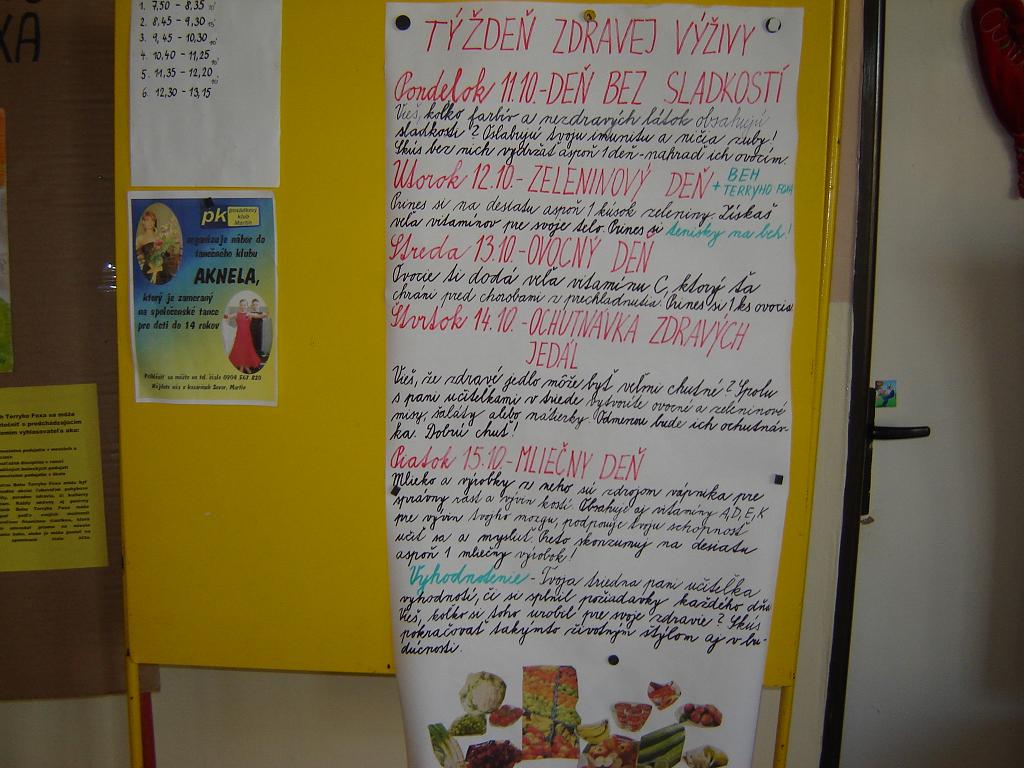 KA
1. 7,50 - 8,35 10'
2. 8,45 - 9,30 15'
3. 9,45 - 10,30 10'
4. 10,40 - 11,25 10'
5. 11,35 - 12,20 10'
6. 12,30 - 13,15
pk posádkový klub Martin
organizuje nábor do
tanečného klubu
AKNELA,
ktorý je zameraný
na spoločenské tance
pre deti do 14 rokov
Prihlásiť sa môžte na tel. čísle 0904 567 820
Nájdete nás v kasárňach Sever, Martin
TÝŽDEŇ ZDRAVEJ VÝŽIVY
Pondelok 11.10.-DEŇ BEZ SLADKOSTÍ
Vieš, koľko farbív a nezdravých látok obsahujú
sladkosti? Oslabujú tvoju imunitu a ničia zuby!
Skús bez nich vydržať aspoň 1 deň-nahraď ich ovocím.
Utorok 12.10.- ZELENINOVÝ DEŇ + BEH
TERRYHO FOXA
Prines si na desiatu aspoň 1 kúsok zeleniny. Získaš
veľa vitamínov pre svoje telo. Prines si tenisky na beh!
Streda 13.10.-OVOCNÝ DEŇ
Ovocie ti dodá veľa vitamínu C, ktorý ťa
chráni pred chorobami z prechladnutia. Prines si 1 ks ovocia
Štvrtok 14.10.-OCHUTNÁVKA ZDRAVÝCH
JEDÁL
Vieš, že zdravé jedlo môže byť veľmi chutné? Spolu
s pani učiteľkami v triede vytvoríte ovocné a zeleninové
misy, šaláty alebo nátierky. Odmenou bude ich ochutnáv-
ka. Dobrú chuť!
Piatok 15.10.-MLIEČNY DEŇ
Mlieko a výrobky z neho sú zdrojom vápnika pre
správny rast a vývin kostí. Obsahuje aj vitamíny A,D,E,K
pre vývin tvojho mozgu, podporuje tvoju schopnosť
učiť sa a myslieť. Preto skonzumuj na desiatu
aspoň 1 mliečny výrobok!
Vyhodnotenie - Tvoja triedna pani učiteľka
vyhodnotí, či si splnil požiadavky každého dňa
Vieš, koľko si toho urobil pre svoje zdravie? Skús
pokračovať takýmto životným štýlom aj v bu-
dúcnosti.